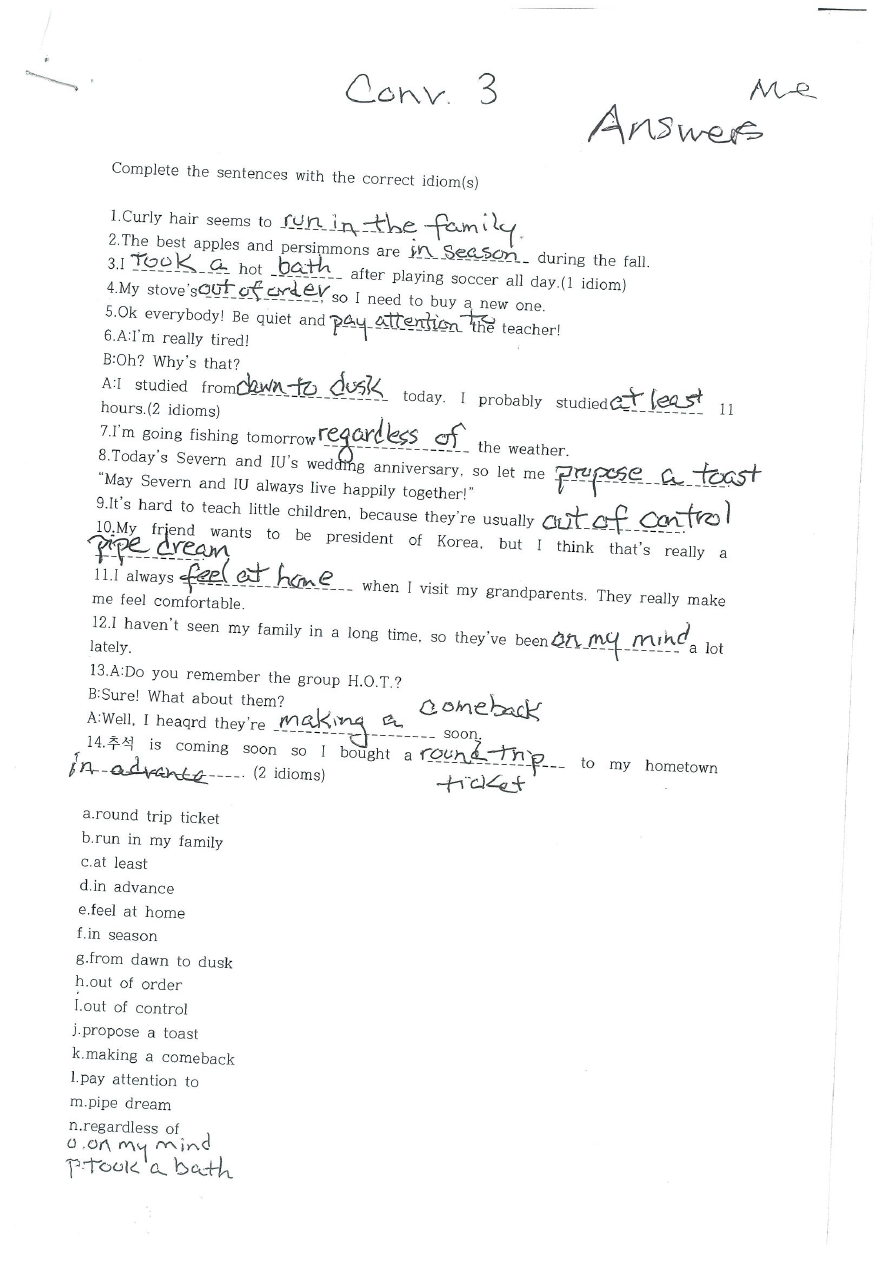 Conv. 3
Me
Answers
Complete the sentences with the correct idiom(s)
1.Curly hair seems to run in the family.
2.The best apples and persimmons are in season during the fall.
3.I took a hot bath after playing soccer all day.(1 idiom)
4.My stove's out of order, so I need to buy a new one.
5.Ok everybody! Be quiet and pay attention to the teacher!
6.A:I'm really tired!
B:Oh? Why's that?
A:I studied from dawn to dusk today. I probably studied at least 11
hours.(2 idioms)
7.I'm going fishing tomorrow regardless of the weather.
8.Today's Severn and IU's wedding anniversary, so let me propose a toast
"May Severn and IU always live happily together!"
9.It's hard to teach little children, because they're usually out of control
10.My friend wants to be president of Korea, but I think that's really a
pipe dream
11.I always feel at home when I visit my grandparents. They really make
me feel comfortable.
12.I haven't seen my family in a long time, so they've been on my mind a lot
lately.
13.A:Do you remember the group H.O.T.?
B:Sure! What about them?
A:Well, I heaqrd they're making a comeback soon.
14.추석 is coming soon so I bought a round trip ticket to my hometown
in advance. (2 idioms)
a.round trip ticket
b.run in my family
c.at least
d.in advance
e.feel at home
f.in season
g.from dawn to dusk
h.out of order
i.out of control
j.propose a toast
k.making a comeback
l.pay attention to
m.pipe dream
n.regardless of
o.on my mind
p.took a bath